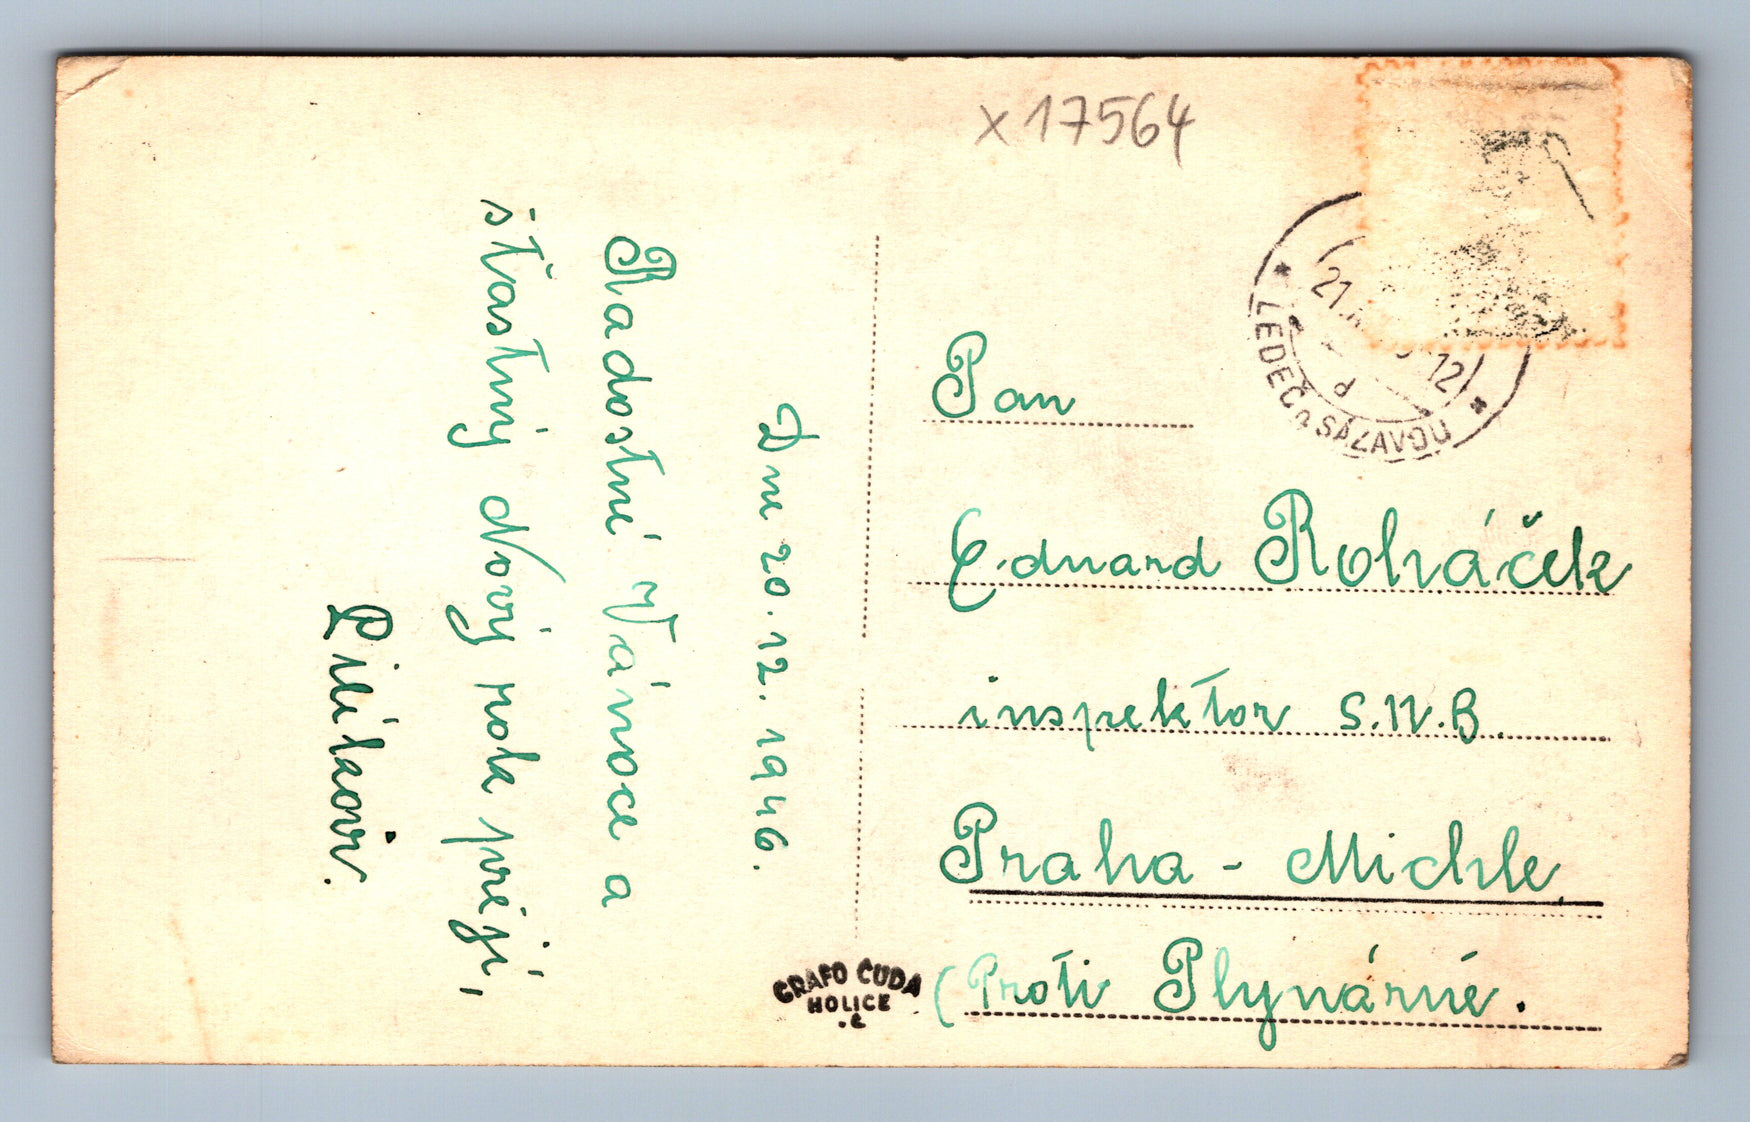 x 17564
Dne 20. 12. 1946.
Radostné Vánoce a
šťastný Nový rok přejí,
21. 12
d
LEDEČ n. SÁZAVOU
Pan
Eduard Roháček
inspektor S.N.B.
Praha - Michle,
(Proti Plynárně.
GRAFO ČUDA
HOLICE
.č.